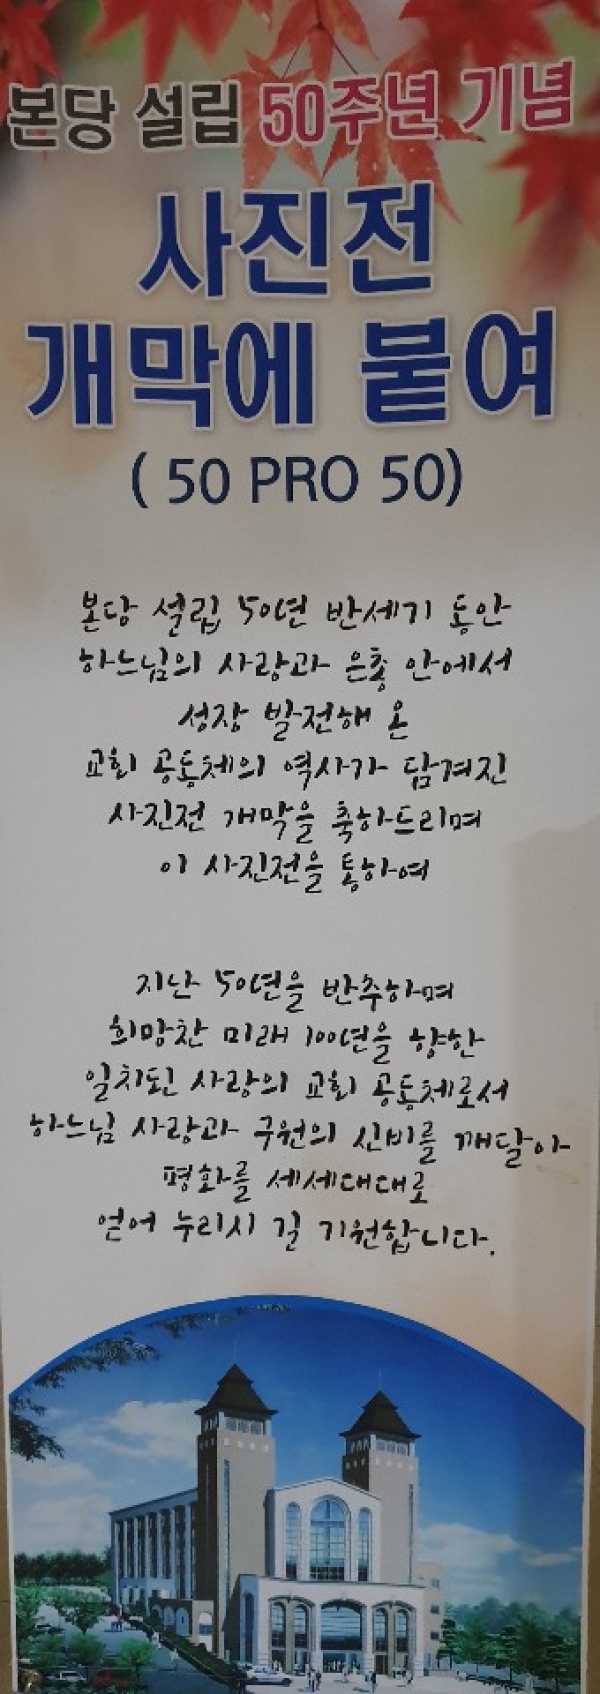 본당 설립 50주년 기념
사진전
개막에 붙여
( 50 PRO 50)
본당 설립 50년 반세기 동안
하느님의 사랑과 은총 안에서
성장 발전해 온
교회 공동체의 역사가 담겨진
사진전 개막을 축하드리며
이 사진전을 통하여
지난 50년을 반추하며
희망찬 미래 100년을 향한
일치된 사랑의 교회 공동체로서
하느님 사랑과 구원의 신비를 깨달아
평화를 세세대대로
얻어 누리시길 기원합니다.